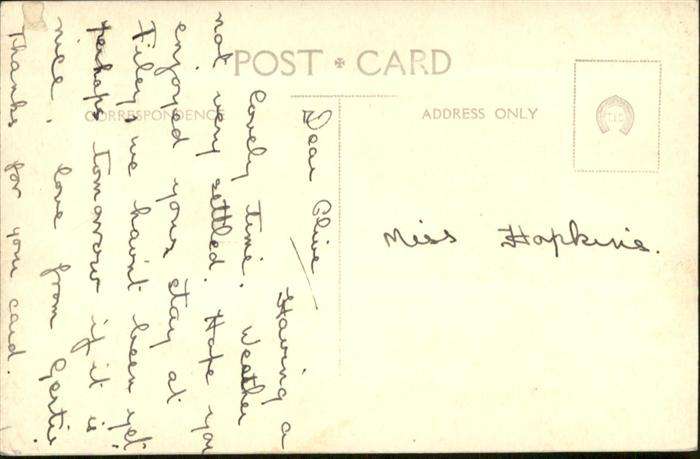 POST CARD
CORRESPONDENCE
ADDRESS ONLY
Dear Olive
Having a
lovely time. Weather
not very settled. Hope you
enjoyed your stay at
Filey, we hav'nt been yet
perhaps tomorrow if it is
nice. love from Gertie
Thanks for your card.
Miss Hopkins.